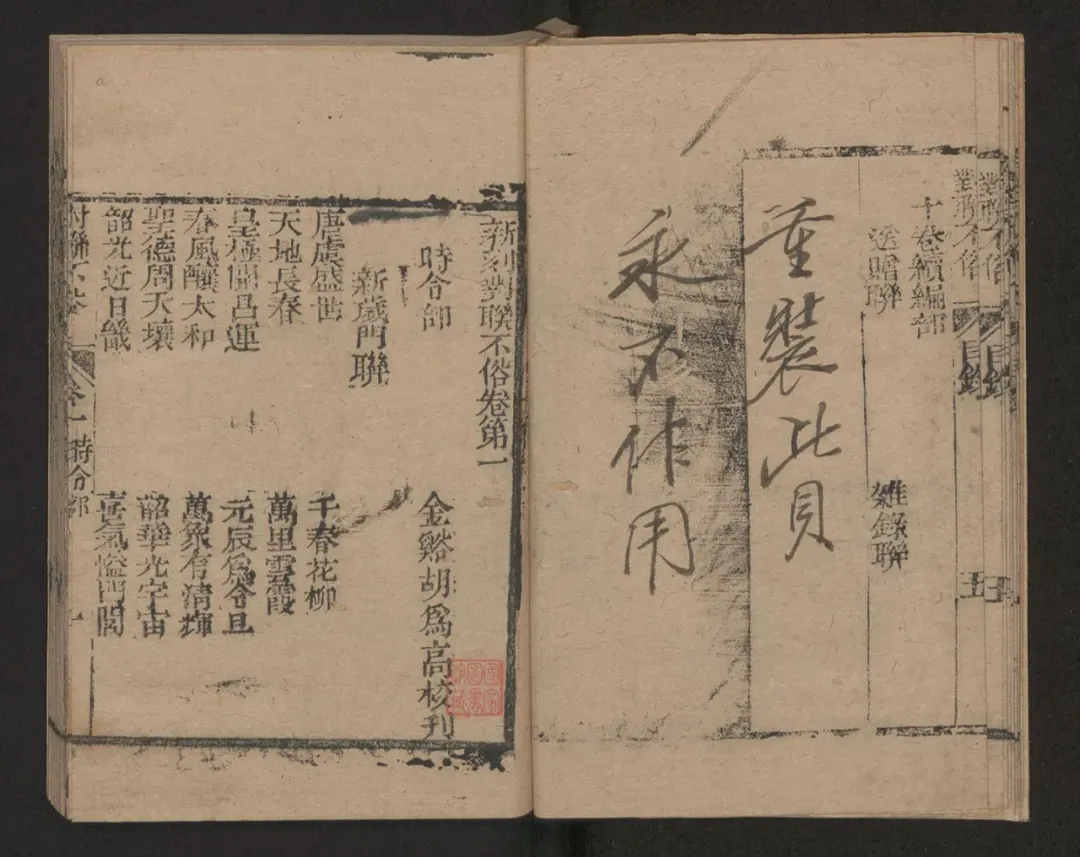 對聯不俗
目錄
十卷續編部
送贈聯
雜錄聯
重裝此頁
永不作用
新刻對聯不俗卷第一
時令部
金谿胡爲高校刊
新歲門聯
唐虞盛世
千春花柳
天地長春
萬里雲霞
皇極開昌運
元辰爲令旦
春風釀太和
萬象有清輝
聖德周天壤
韶華光宇宙
韶光近日畿
喜氣溢門閭
對聯不俗
卷一
時令部
一